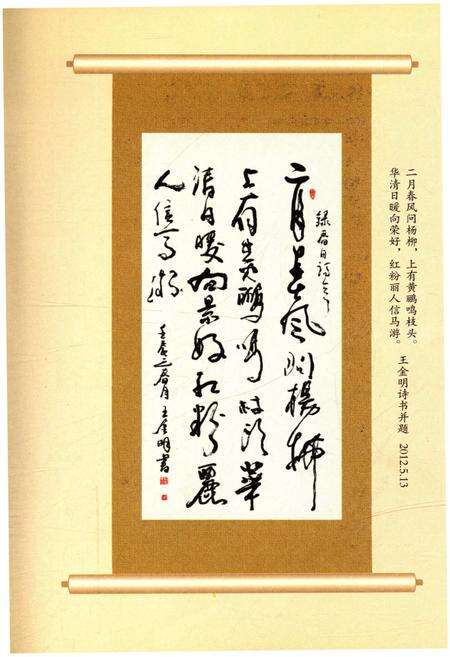 二月春风问杨柳，上有黄鹏鸣枝头。
华清日暖向荣好，红粉丽人信马游。 王金明诗书并题 2012.5.13
二月春風问楊柳
春日詩
上有黄鹏鸣枝头華
清日暖向景好红粉麗
人信马游
壬辰三春月王金明書